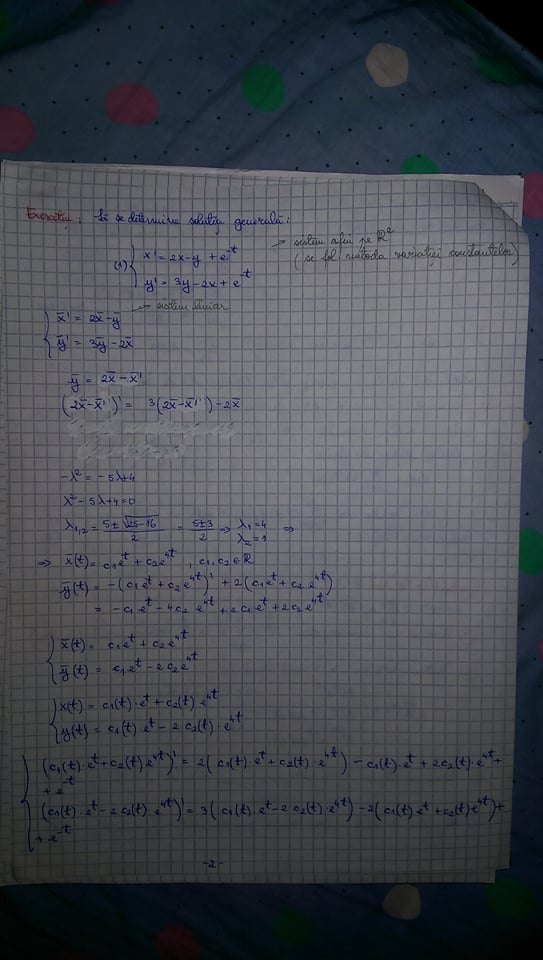 Exercițiu: Să se determine soluția generală:
(1) { x' = 2x-y + e^-t → sistem afin pe ℝ²
y' = 3y-2x + e^-t (se fol. metoda variației constantelor)
{ x̄' = 2x̄-ȳ → sistem liniar
ȳ' = 3ȳ-2x̄
ȳ = 2x̄-x̄'
(2x̄-x̄')' = 3(2x̄-x̄')-2x̄
-λ² = -5λ+4
λ²-5λ+4=0
λ1,2 = (5±√(25-16))/2 = (5±3)/2 ⇒ λ1=4 λ2=1 ⇒
⇒ x̄(t) = c1e^t + c2e^4t, c1,c2∈ℝ
ȳ(t) = -(c1e^t + c2e^4t)' + 2(c1e^t + c2e^4t)
= -c1e^t - 4c2e^4t + 2c1e^t + 2c2e^4t
{ x̄(t) = c1e^t + c2e^4t
ȳ(t) = c1e^t - 2c2e^4t
{ x(t) = c1(t)·e^t + c2(t)e^4t
y(t) = c1(t)·e^t - 2c2(t)·e^4t
{ (c1(t)·e^t + c2(t)e^4t)' = 2(c1(t)·e^t + c2(t)·e^4t) - c1(t)·e^t + 2c2(t)·e^4t +
+ e^-t
(c1(t)·e^t - 2c2(t)·e^4t)' = 3(c1(t)·e^t - 2c2(t)·e^4t) - 2(c1(t)e^t + c2(t)e^4t) +
+ e^-t
-2-